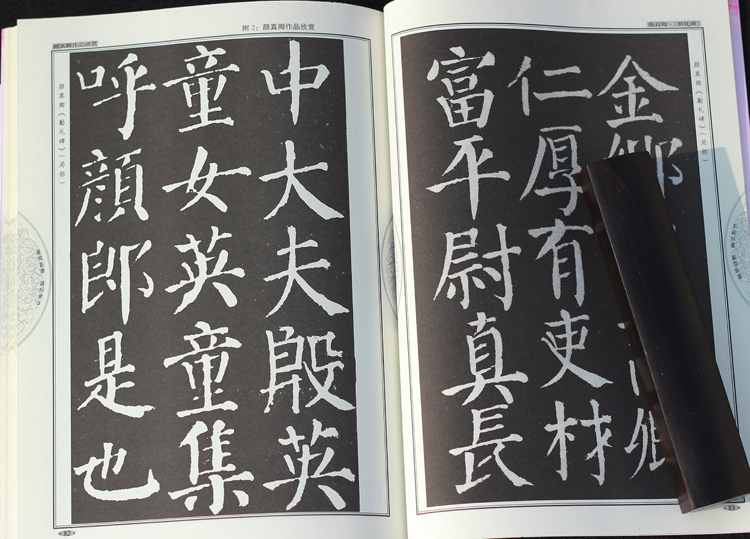 颜真卿作品欣赏
附2：颜真卿作品欣赏
颜真卿《勤礼碑》(局部)
中大夫殷英
童女英童集
呼顏郎是也
82
颜真卿《勤礼碑》(局部)
金
仁厚有吏材
富平尉真長
83